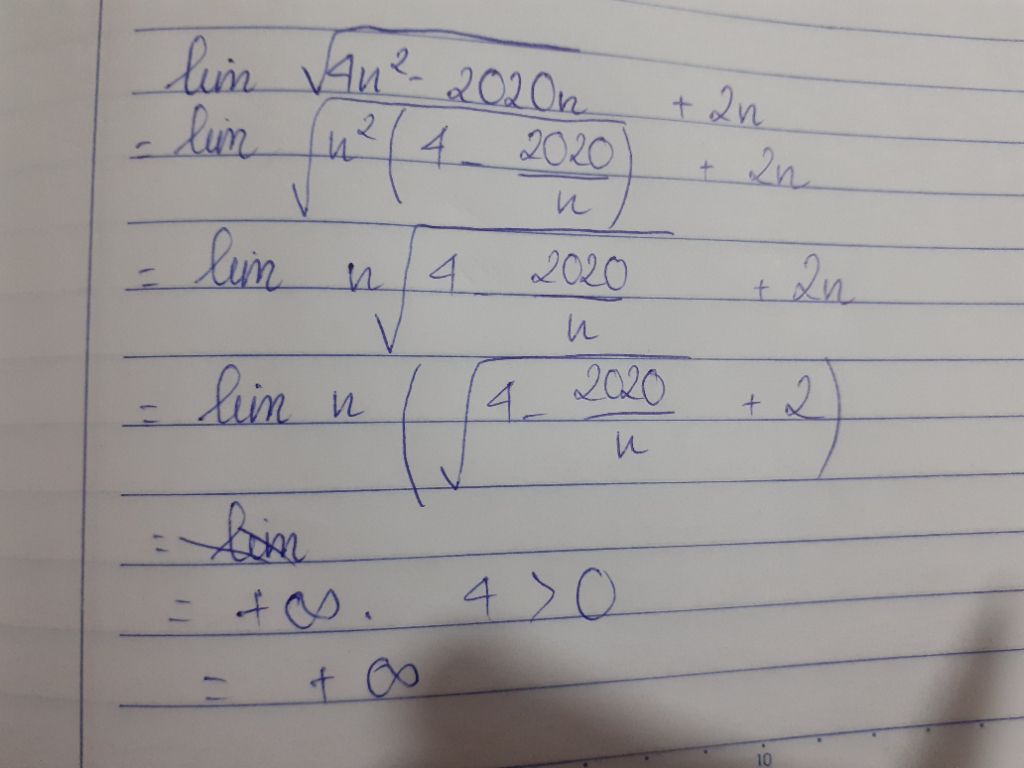 lim √(4n² - 2020n) + 2n
= lim √(n² (4 - 2020/n)) + 2n
= lim n √(4 - 2020/n) + 2n
= lim n (√(4 - 2020/n) + 2)
= lim
= +∞. 4 > 0
= +∞
10